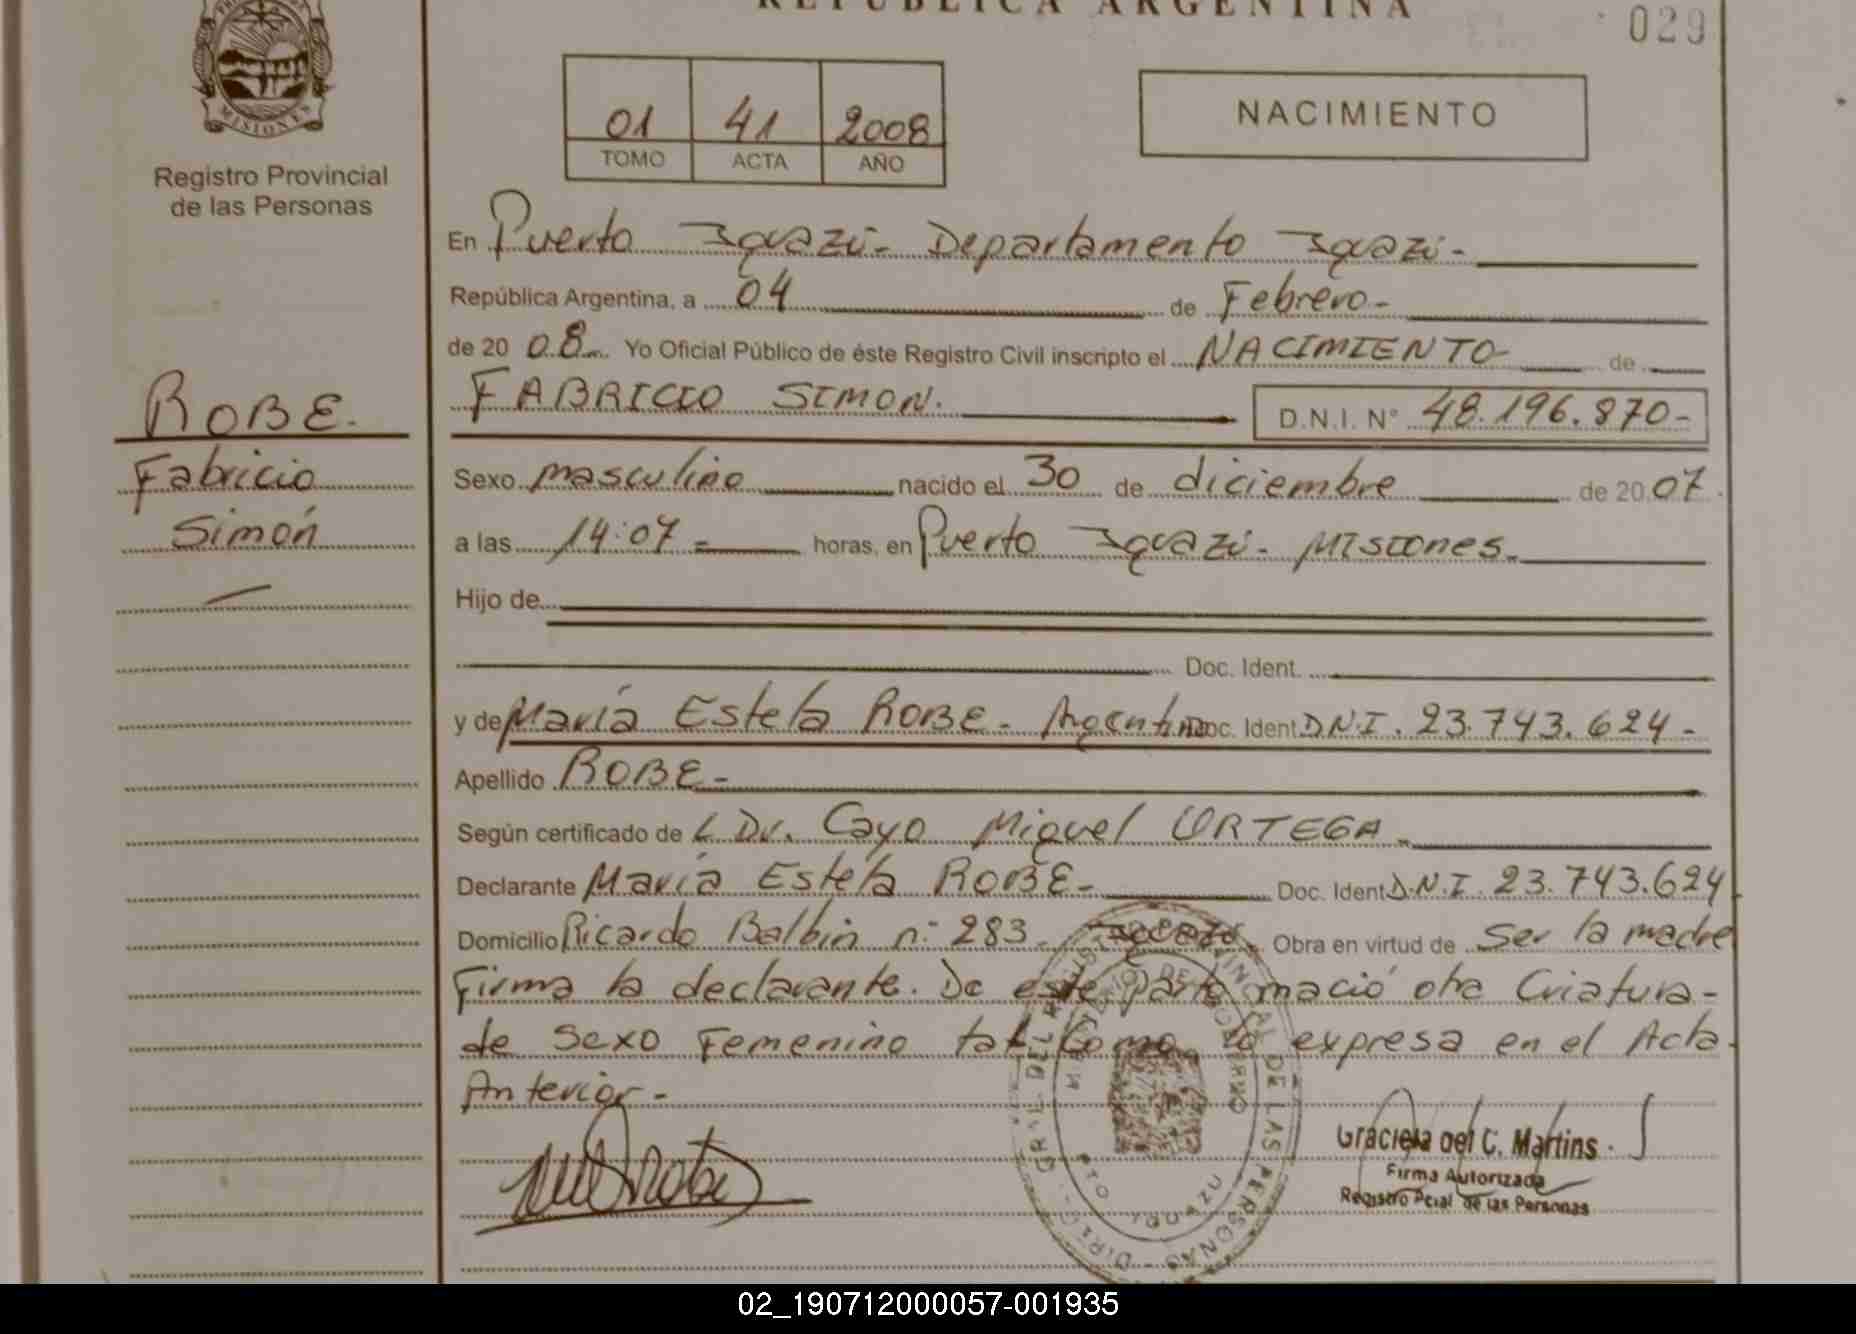 REPUBLICA ARGENTINA
029
MISIONES
Registro Provincial
de las Personas
01 41 2008
TOMO ACTA AÑO
NACIMIENTO
En Puerto Iguazú - Departamento Iguazú -
República Argentina, a 04 de Febrero -
de 20 08 Yo Oficial Público de éste Registro Civil inscripto el NACIMIENTO de
FABRICIO SIMON. D.N.I. N° 48.196.870 -
ROBE.
Fabricio
Simón
Sexo masculino nacido el 30 de diciembre de 20 07
a las 14:07 - horas, en Puerto Iguazú - Misiones -
Hijo de
Doc. Ident.
y de María Estela ROBE - Argentina Doc. Ident. D.N.I. 23.743.624 -
Apellido ROBE -
Según certificado de L Dr. Cayo Miguel ORTEGA -
Declarante María Estela ROBE - Doc. Ident D.N.I. 23.743.624
Domicilio Ricardo Balbin n° 283 - Iguazú. Obra en virtud de ser la madre
Firma la declarante. De este parto nació otra Criatura -
de sexo Femenino tal como lo expresa en el Acta
Anterior -
Graciela del C. Martins
Firma Autorizada
Registro Pcial de las Personas
DE LAS PERSONAS
PTO IGUAZU
02_190712000057-001935